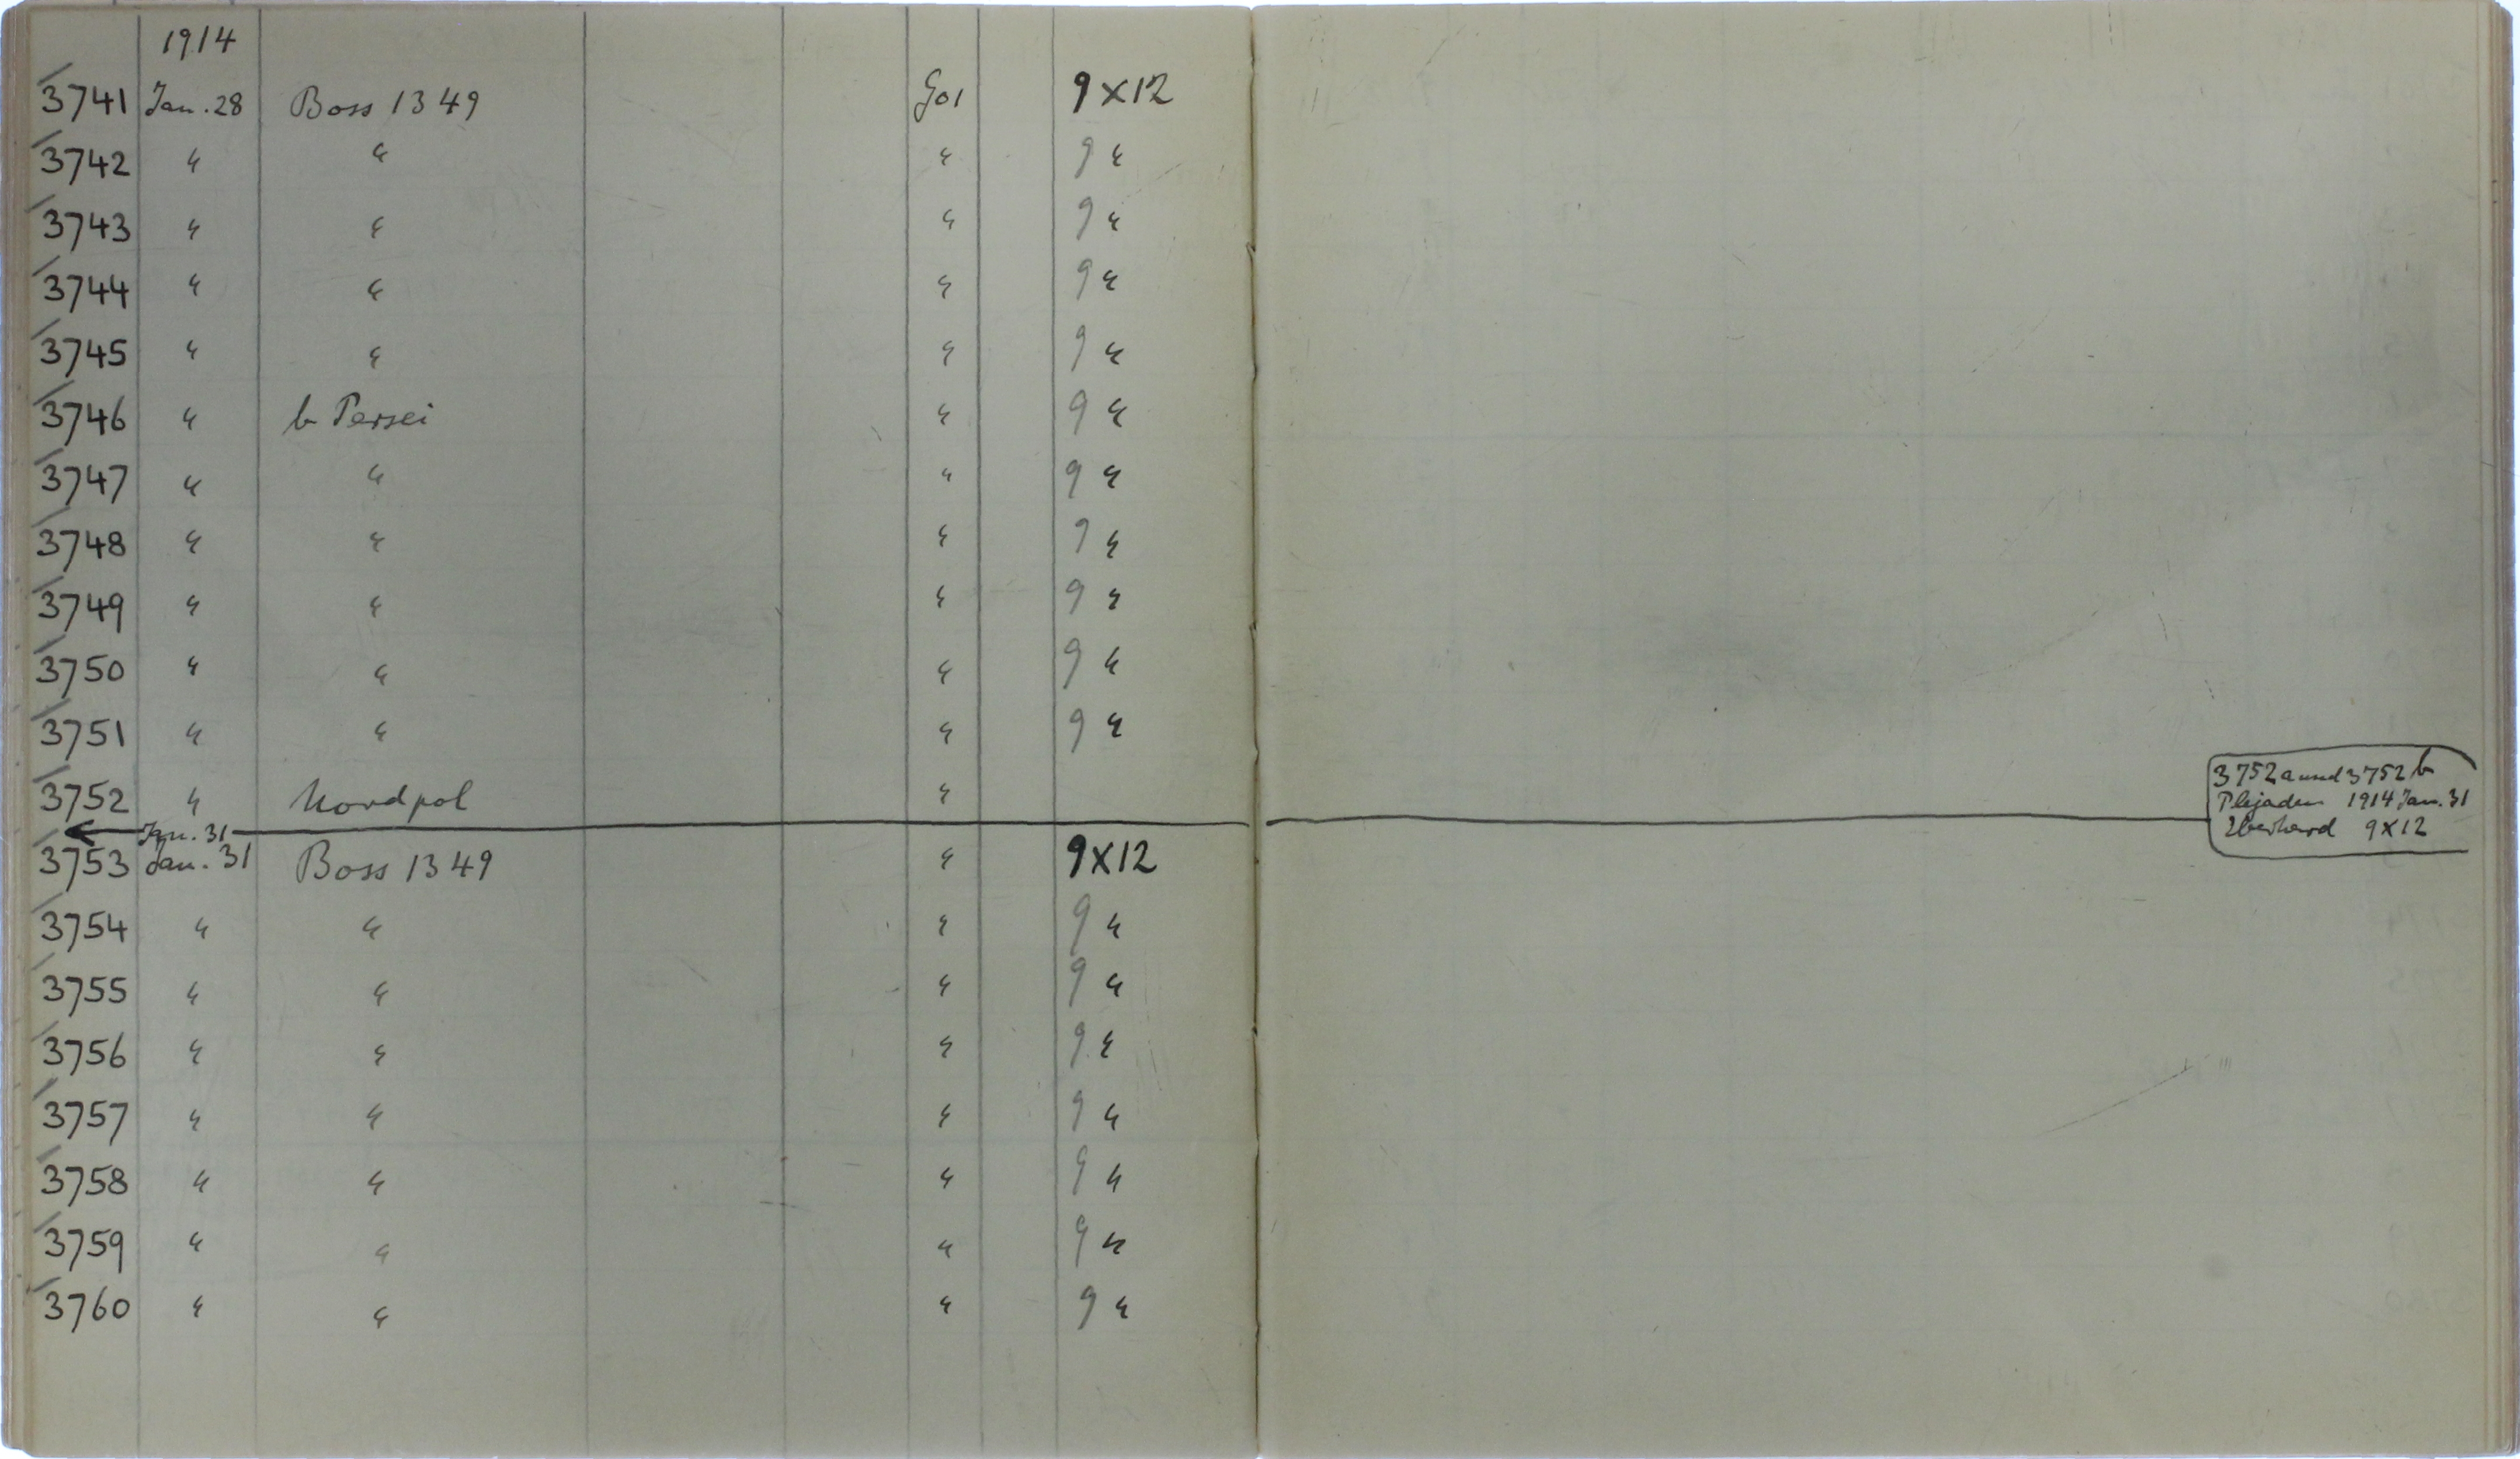 1914
3741 Jan. 28 Boss 1349 9×12
3742 " " " 9 "
3743 " " " 9 "
3744 " " " 9 "
3745 " " " 9 "
3746 " b Persei " 9 "
3747 " " " 9 "
3748 " " " 9 "
3749 " " " 9 "
3750 " " " 9 "
3751 " " " 9 "
3752 " Nordpol "
Jan. 31
3753 Jan. 31 Boss 1349 " 9×12
3754 " " " 9 "
3755 " " " 9 "
3756 " " " 9 "
3757 " " " 9 "
3758 " " " 9 "
3759 " " " 9 "
3760 " " " 9 "
3752 a und 3752 b
Plejaden 1914 Jan. 31
Eberhard 9×12